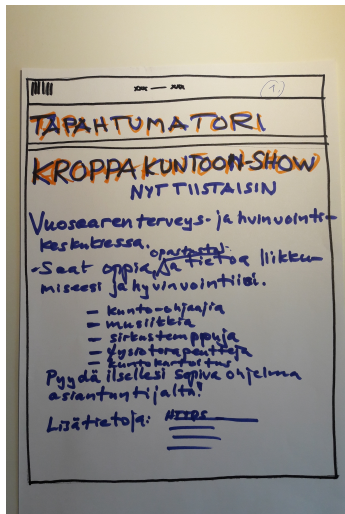 xxx — xxx
1.
TAPAHTUMATORI
KROPPA KUNTOON-SHOW
NYT TIISTAISIN
Vuosaaren terveys- ja hvinvointi-
keskuksessa.
opastusta
- Saat oppia, ja tietoa liikku-
miseesi ja hyvinvointiisi.
- kunto-ohjaajia
- musiikkia
- sirkustemppuja
- fysioterapeutteja
- kuntokartoitus
Pyydä itsellesi sopiva ohjelma
asiantuntijalta!
Lisätietoja: HTTPS